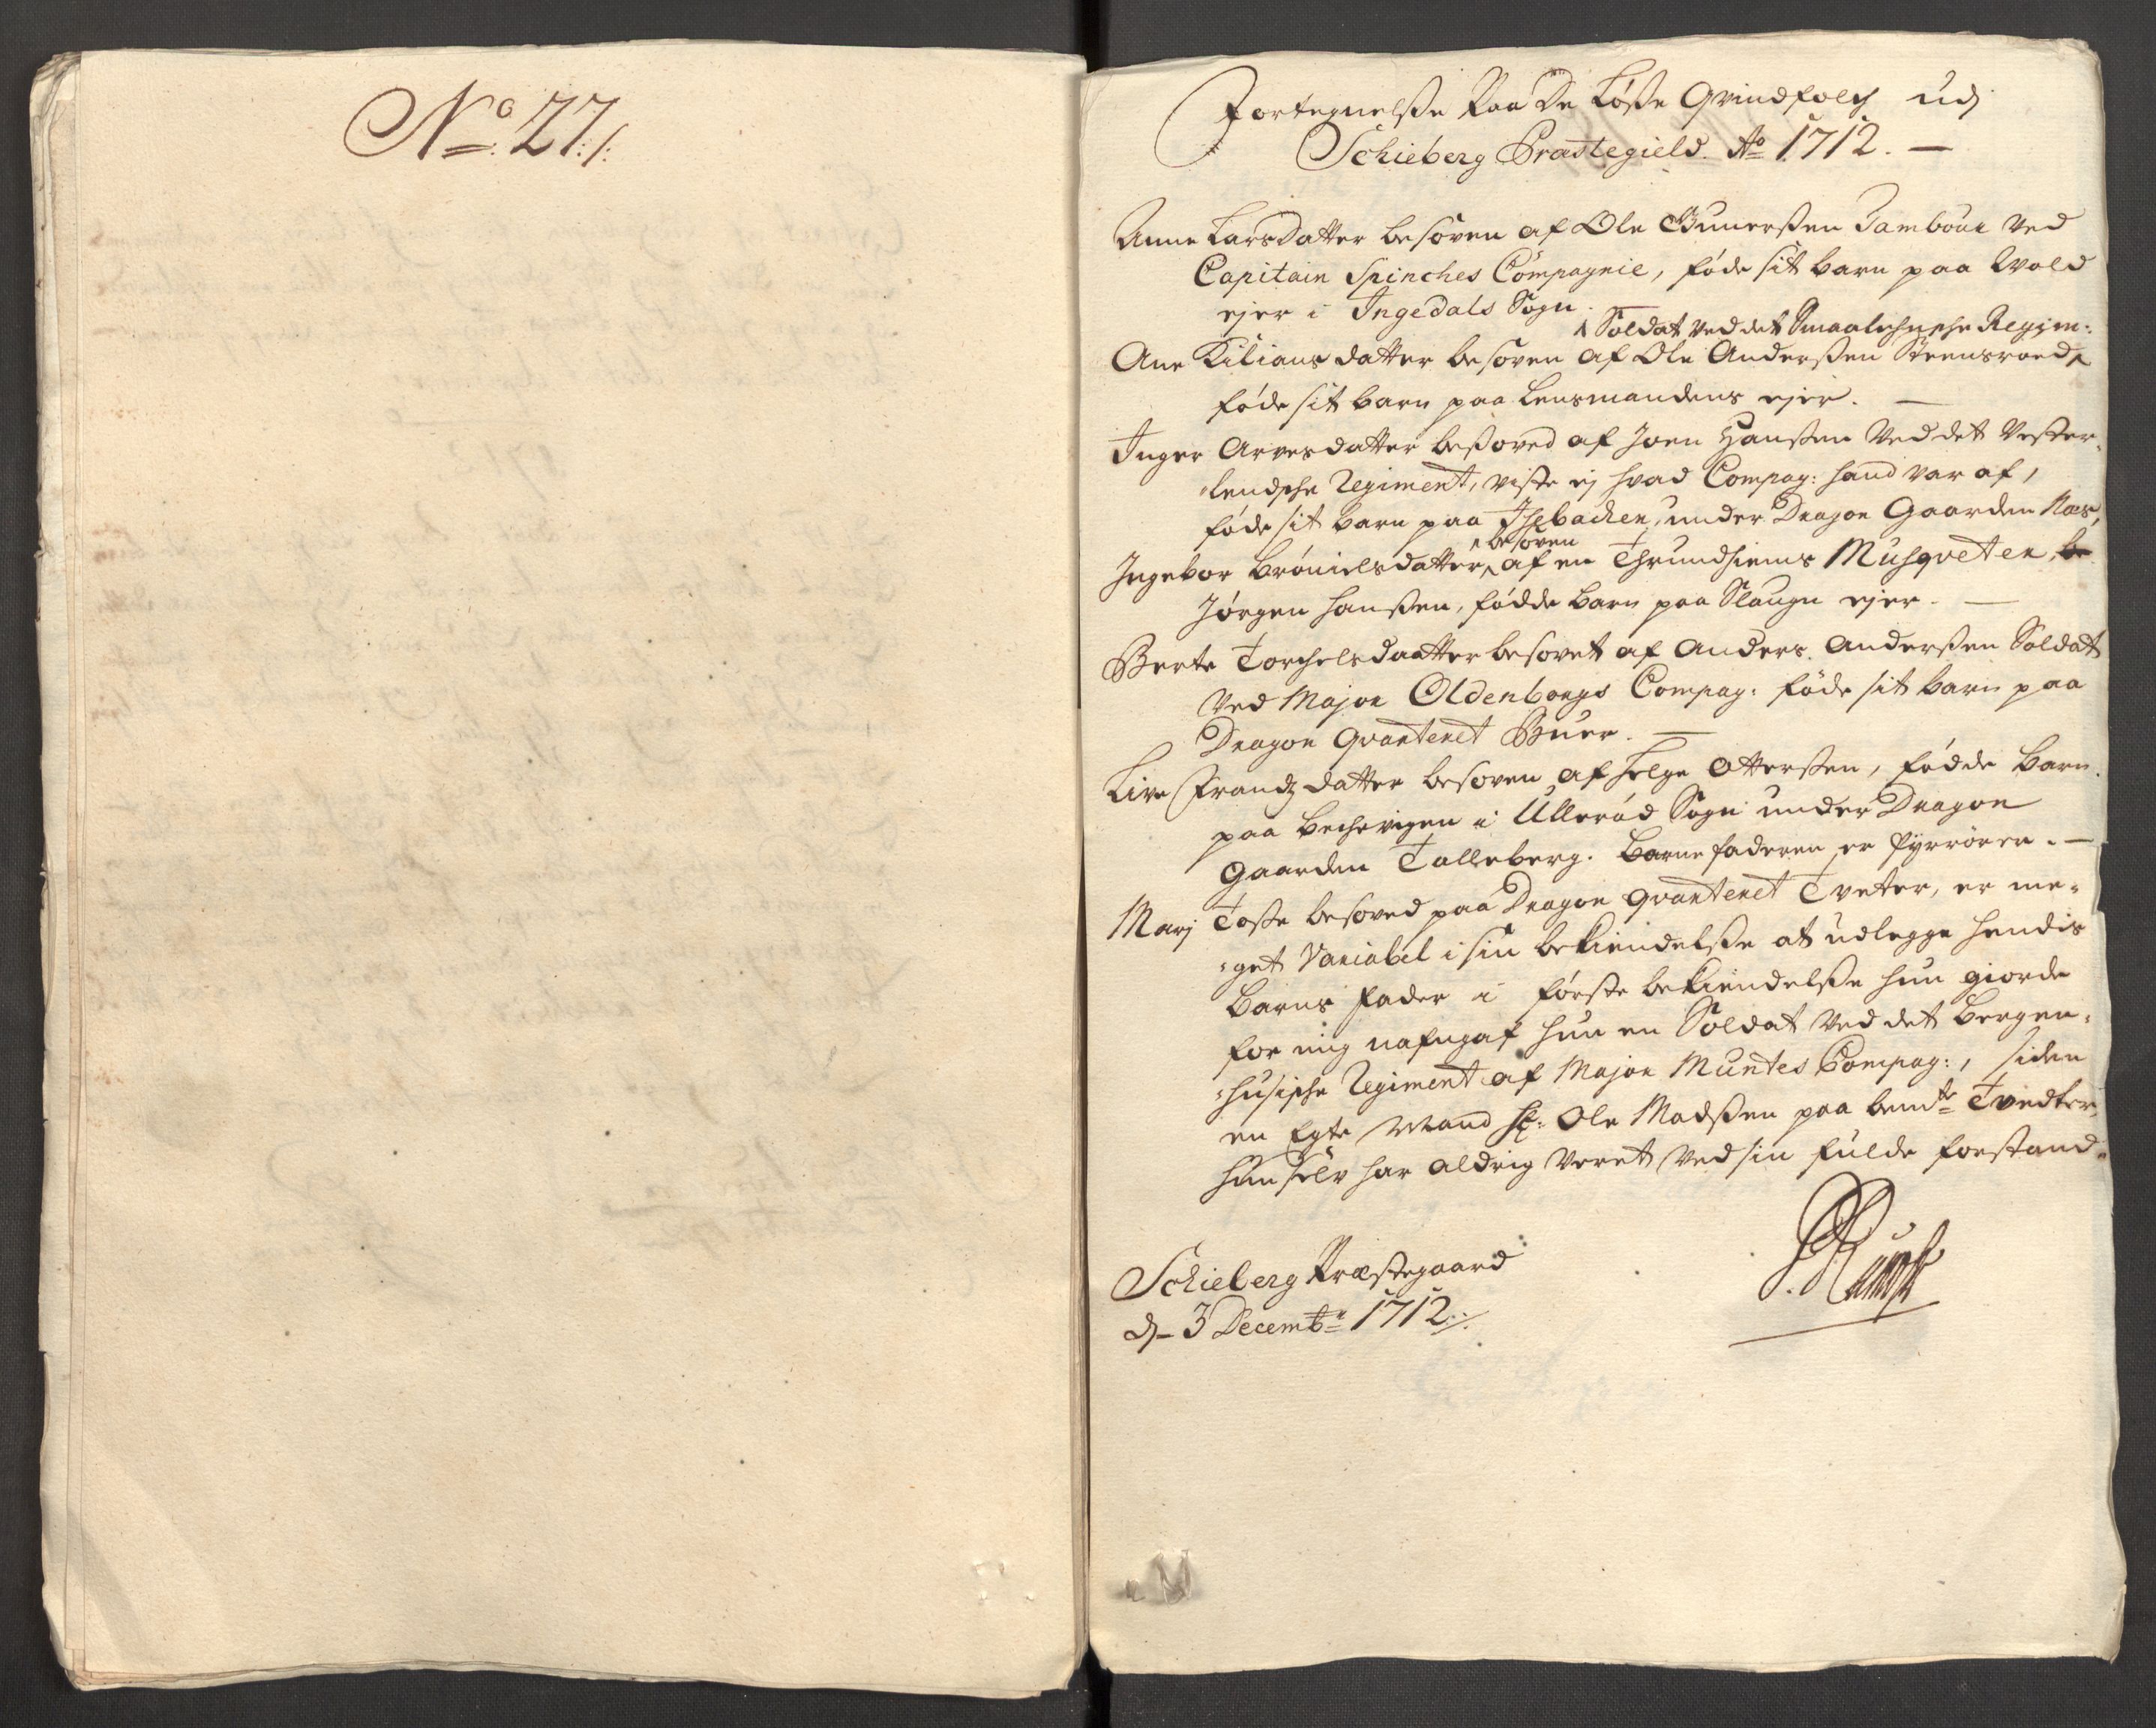 No. 27 ./.
Fortegnelsse Paa De Løsse Qvindfolch udj
Schieberg Præstegield. Ao 1712. —
Anne Larsdatter besoven af Ole Gunerssen Tambour ved
Capitain Spinches Compagnie, føde sit barn paa Wold
ejer i Ingedals Sogn.
Soldat ved det Smaalehnsche Regim:
Ane Kilians datter besoven af Ole Anderssen Steensroed
føde sit barn paa Lensmandens ejer. —
Inger Arnesdatter besoved af Joen Hanssen ved det Vester-
lendsche Regiment, viste ej hvad Compag: hand var af,
føde sit barn paa Isebachen, under Dragon Gaarden Næs,
besoven
Ingebor Brønielsdatter af en Thrundhiems Musqveter, be
Jørgen Hanssen, fødde barn paa Slaugn ejer. —
Berte Torchelsdaatter besovet af Anders Anderssen Soldat
ved Major Oldenborgs Compag: føde sit barn paa
Dragon Qvarteret Buer. —
Live Frandz datter besoven af Helge Otterssen, fødde barn
paa Bechevigen i Ullerød Sogn under Dragon
Gaarden Talleberg. Barnefaderen er fyrrører. —
Marj Tosse besoved paa Dragon qvarteret Tveter, er me-
get Variabel i sin bekiendelsse at udlegge hendis
barns fader i første bekiendelsse hun giorde
for mig nafngaf hun en Soldat ved det Bergen-
husische Regiment af Major Muntes Compag:, siden
en Egte Mand Sr: Ole Madssen paa bemte Tvedter,
hun selv har aldrig veret ved sin fulde forstand.
Schieberg Præstegaard
d. 3 Decembr 1712 ./.